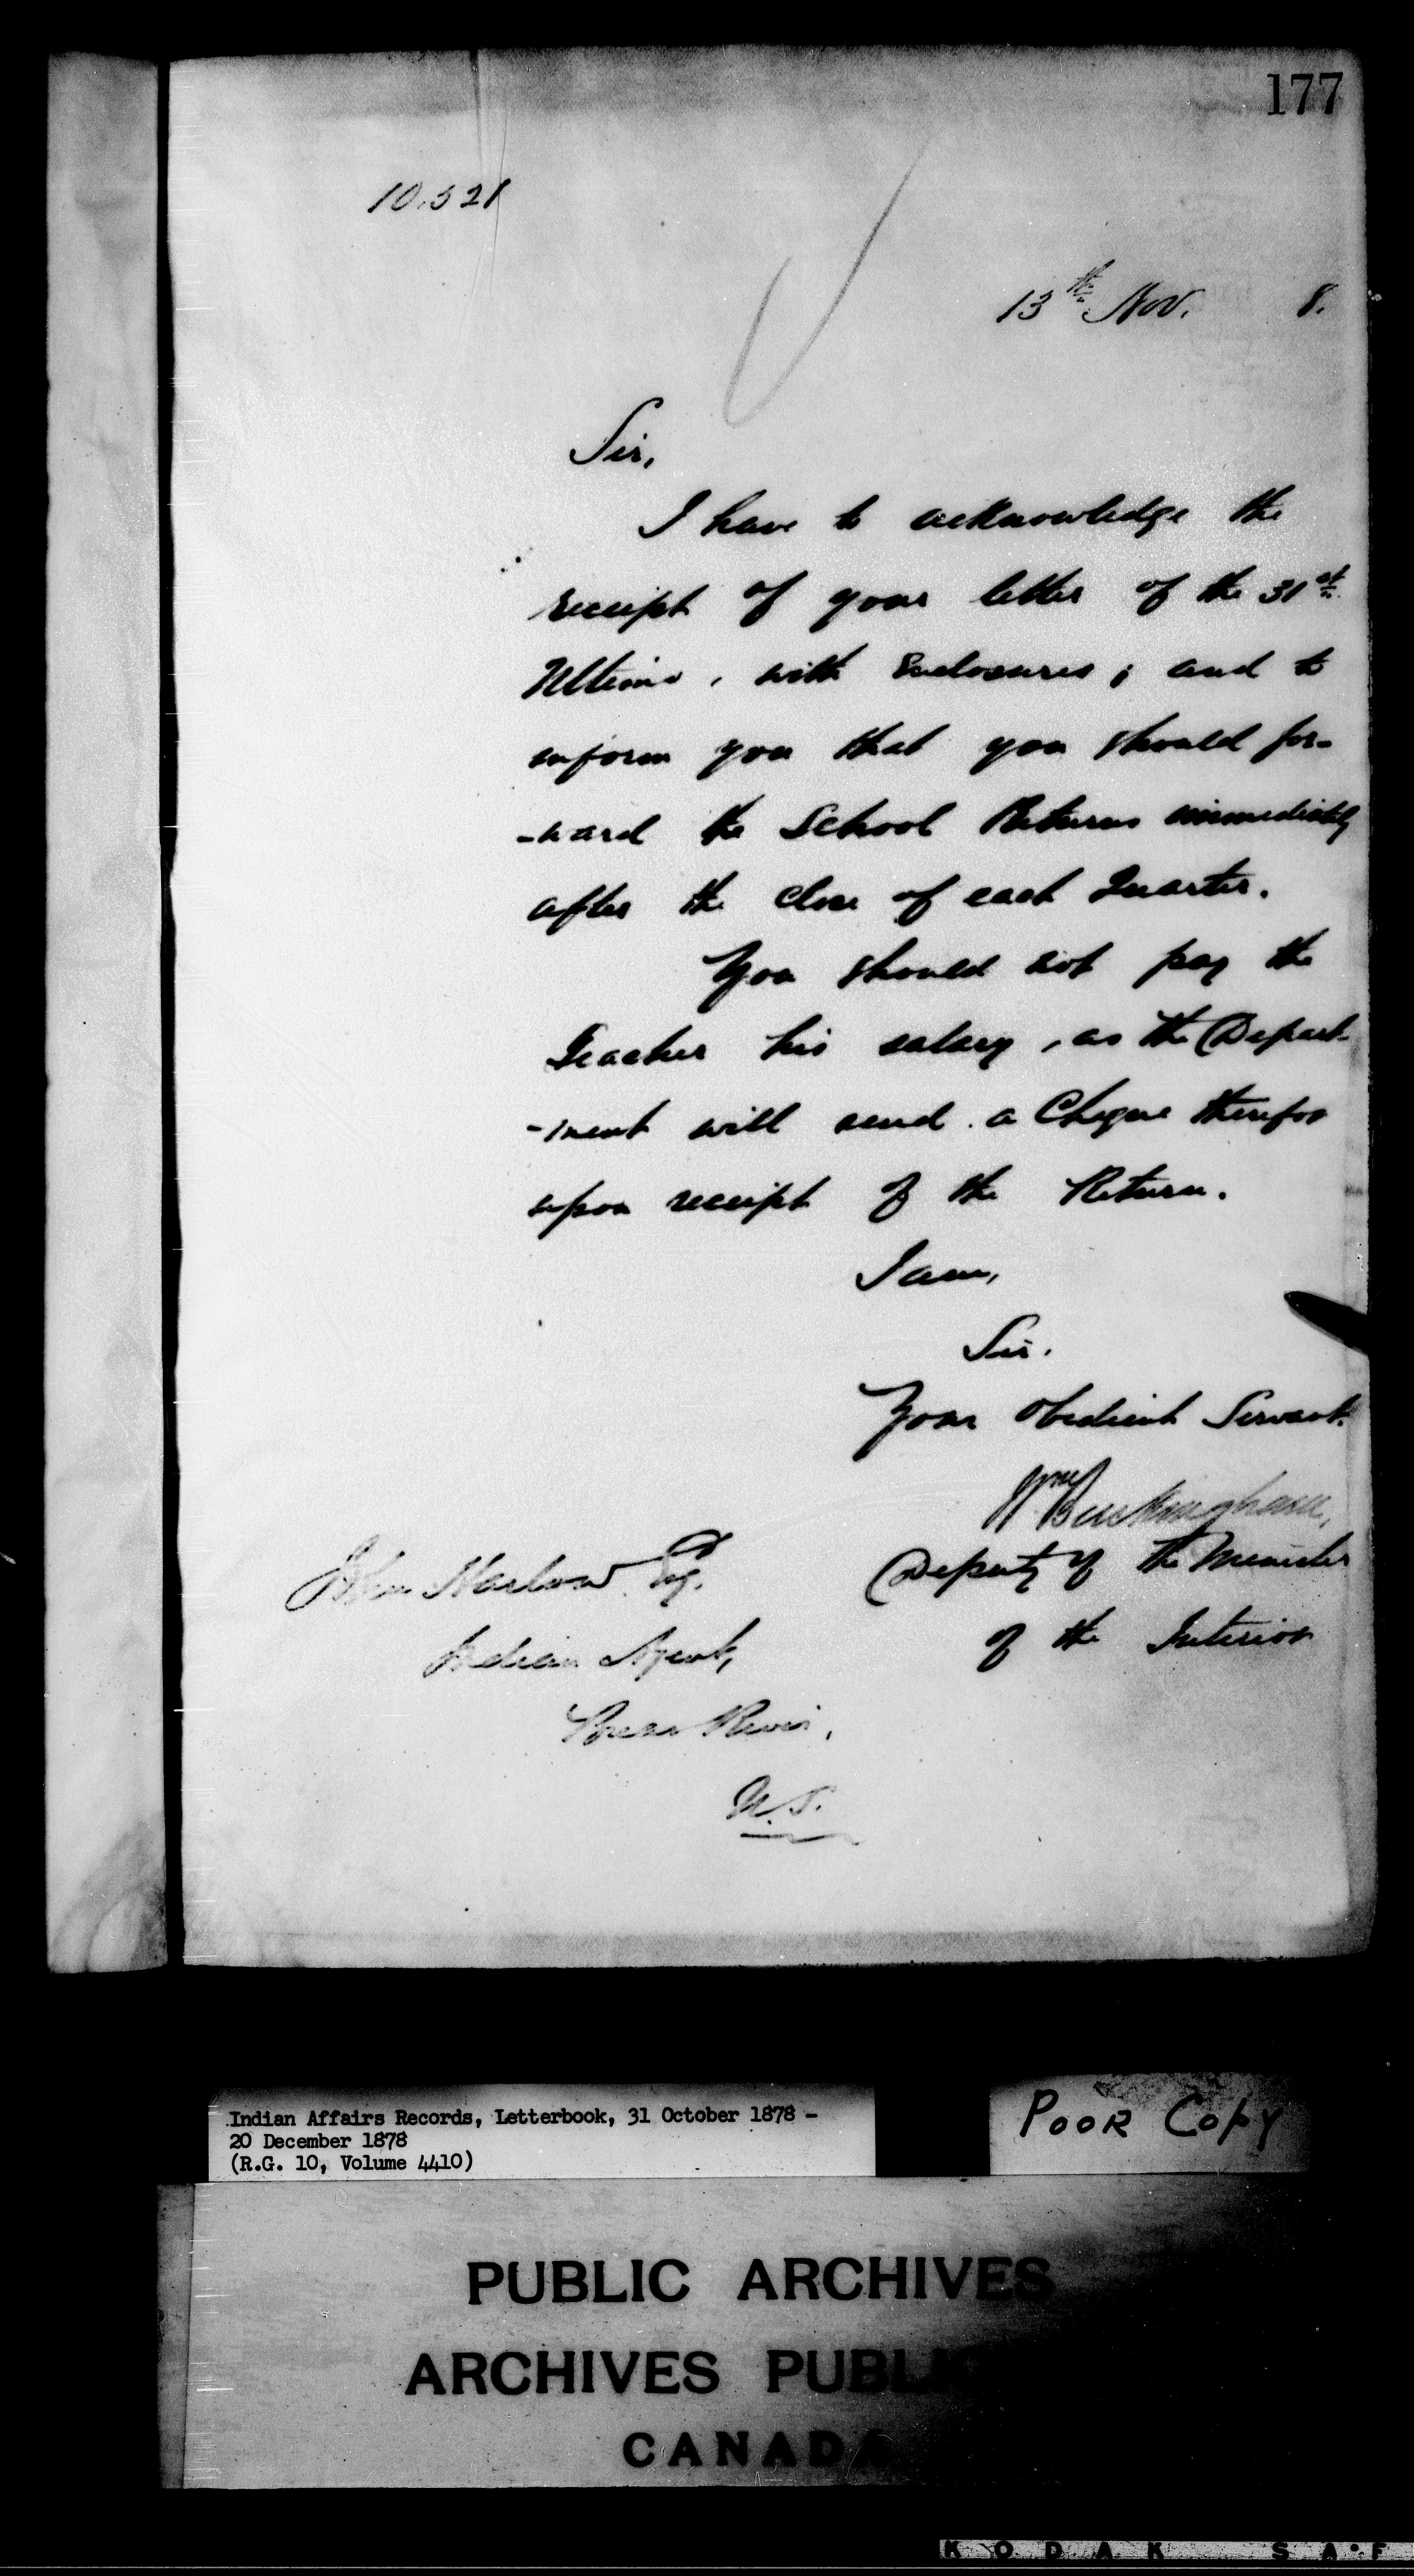 177
10.521
13th Nov. 8.
Sir,
I have to acknowledge the
receipt of your letter of the 31st
Ultimo, with Enclosures; and to
inform you that you should for-
-ward the School Returns immediately
after the Close of each Quarter.
You should not pay the
Teacher his salary, as the Depart-
-ment will send a Cheque therefor
upon receipt of the Return.
I am,
Sir.
Your Obedient Servant.
Wm Buckingham,
Deputy of the Minister
of the Interior
John Harlow Esq.
Indian Agent,
Bear River,
N.S.
Indian Affairs Records, Letterbook, 31 October 1878 -
20 December 1878
(R.G. 10, Volume 4410)
POOR COPY
PUBLIC ARCHIVES
ARCHIVES PUBLI
CANADA
KODAK SA·F